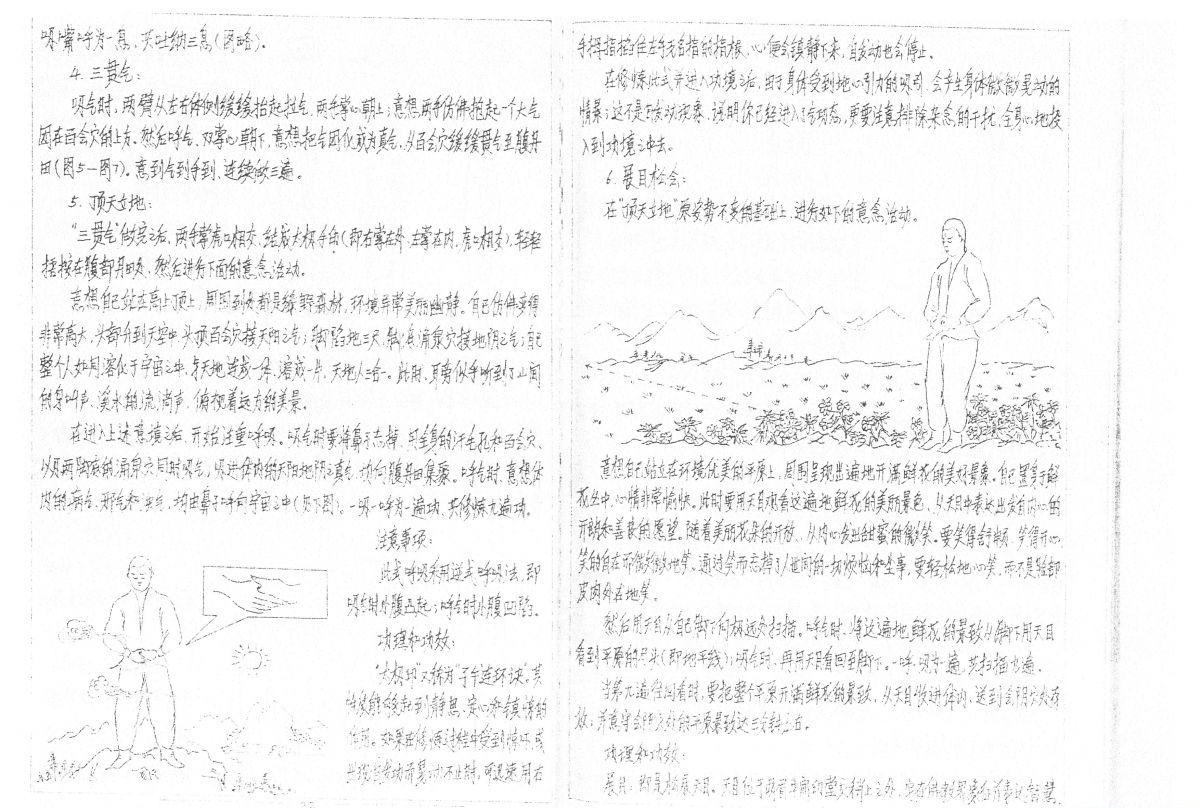 吸一嘴呼为一息，共吐纳三息(图略)。
4. 三贯气：
吸气时，两臂从左右体侧缓缓抬起拉气，两手掌心朝上；意想两手仿佛抱起一个大气
团在百会穴的上方。然后呼气，双掌心朝下，意想把气团化成为真气，从百会穴缓缓贯气至腹丹
田(图5—图7)。意到气到手到、连续做三遍。
5. 顶天立地：
“三贯气”做完之后，两手掌虎口相交，结成太极手印(即右掌在外、左掌在内，虎口相交)，轻轻
按在腹部丹田处，然后进行下面的意念活动。
意想自己站在高山顶上，周围到处都是绿野森林，环境异常美丽幽静。自己仿佛变得
非常高大，头部升到天空中，头顶百会穴接天阳之气；脚陷地三尺，脚底涌泉穴接地阴之气；自己
整个人如同溶化于宇宙之中，与天地连成一体，溶成一片，天地人三合一。此时，耳旁似乎听到了山间
的鸟叫声、溪水的流淌声，俯视着远方的美景。
在进入上述意境之后，开始注重呼吸。吸气时要将鼻子忘掉，用全身的汗毛孔和百会穴、
以及两脚底的涌泉穴同时吸气，吸进体内的天阳地阴之真气，均向腹丹田集聚。呼气时，意想体
内的病气、邪气和浊气，均由鼻子呼向宇宙之中(见下图)。一吸一呼为一遍功，共修炼九遍功。
注意事项：
此式呼吸采用逆式呼吸法，即
吸气时小腹凸起；呼气时小腹凹陷。
功理和功效：
“太极印”又称为“子午连环诀”。其
功效能够起到静思、定心和镇惊的
作用。如果在修炼过程中受到惊吓，或
出现自发动而晃动不止时，可迅速用右
手拇指掐住左手无名指的指根，心便会镇静下来，自发动也会停止。
在修炼此式并进入功境之后，由于身体受到地心引力的吸引，会产生身体微微晃动的
情景；这不是自发动现象，说明你已经进入了气功态，更要注意排除杂念的干扰，全身心地投
入到功境之中去。
6. 展目松会：
在“顶天立地”原姿势不变的基础上，进行如下的意念活动。
意想自己站立在环境优美的平原上，周围呈现出遍地开满鲜花的美好景象。自己置身于鲜
花丛中，心情非常愉快。此时要用天目观看这遍地鲜花的美丽景色，从天目中表达出发自内心的
开朗和善良的愿望。随着美丽花朵的开放，从内心发出甜蜜的微笑。要笑得舒畅、笑得开心、
笑的自在而微微地笑。通过笑而忘掉了人世间的一切烦恼和坐事，要轻松地心笑，而不是脸部
皮肉外在地笑。
然后用天目从自己脚下向极远处扫描。呼气时，将这遍地鲜花的景致从脚下用天目
看到平原的尽头(即地平线)；吸气时，再用天目看回至脚下。一呼一吸为一遍，共扫描九遍。
当第九遍往回看时，要把整个平原开满鲜花的景致，从天目收进体内，送到会阴穴处存
放；并意守会阴穴处的平原景致达三分钟左右。
功理和功效：